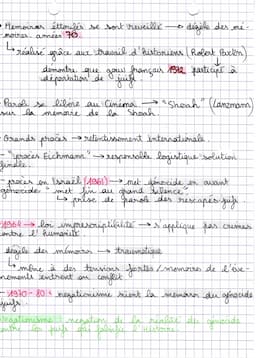 • Mémoires étouffés se sont réveillé → dégèle des mé-
moires années 70.
↳ réalisé grâce aux travail d'historiens (Robert Paxton)
démontre que gouv français 1942 participé à
déportation de juifs
• Parole se libère au Cinéma → "Shoah" (Lanzmann)
sur la mémoire de la Shoah.
• Grands procès → retentissement internationale
"procès Eichmann" → responsable logistique solution
finale.
- procès en Israël (1961) → met génocide en avant
génocide "met fin au grand silence"
↳ prise de parole des rescapés juifs
- 1964 → loi imprescriptibilité → s'applique pas crimes
contre l'humanité
- dégèle des mémoires → traumatique
↳ mène à des tensions fortes / mémoires de l'évè-
nements entrent en conflit
- 1970 - 80 : négationnisme nient la mémoire du génocide
juifs.
Négationnisme : négation de la réalité du génocide
contre les juifs qui falsifie l'Histoire.